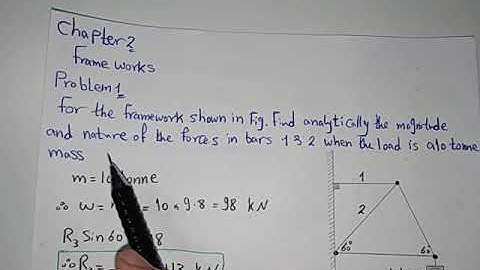 Chapter2
frame works
Problem1
for the framework shown in Fig. Find analytically the magnitude
and nature of the forces in bars 1 3 2 when the load is a 10 tonne
mass
m = 10 tonne
∴ w = 10 * 9.8 = 98 kN
R3 Sin 60 8
∴ R kN
1
2
60°
60°